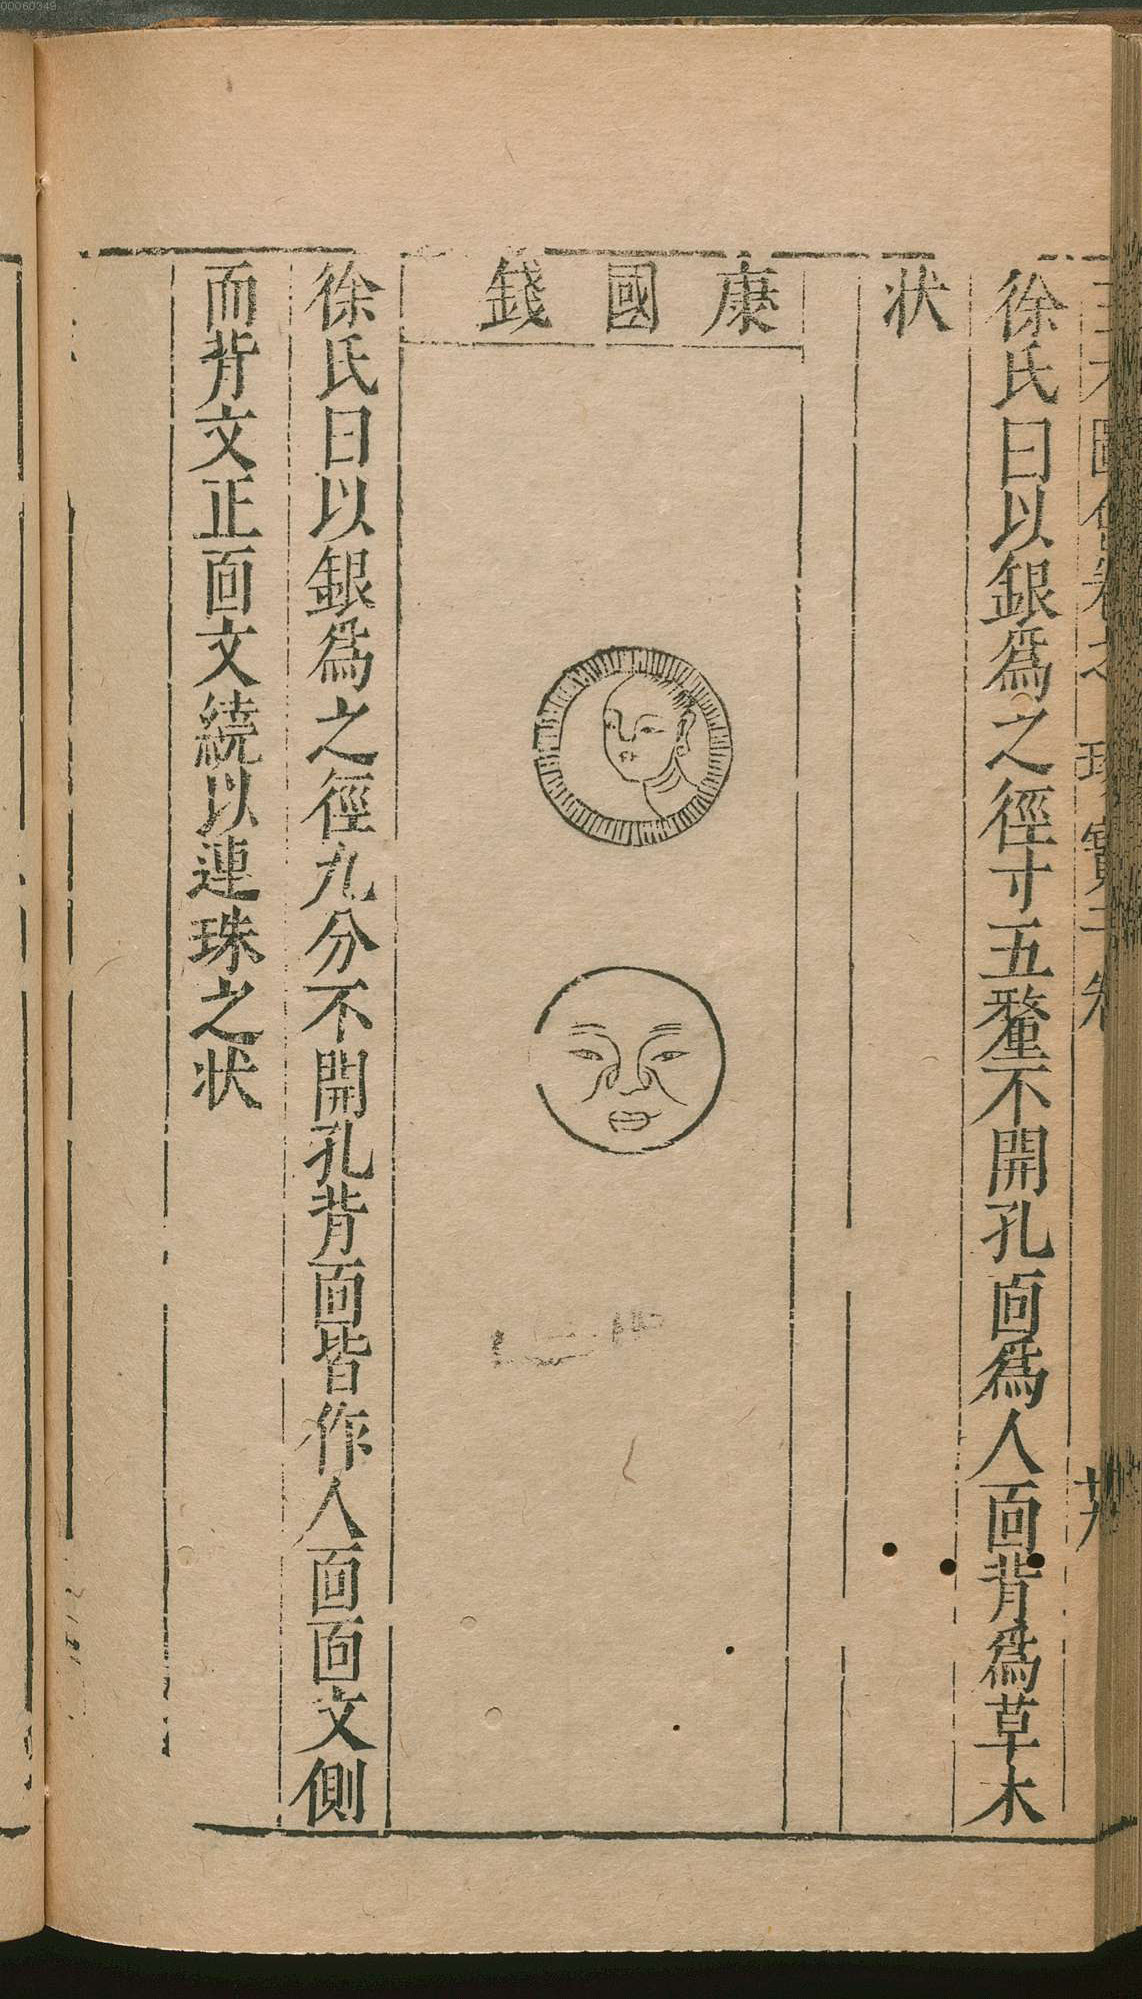 徐氏曰以銀爲之徑寸五釐不開孔靣爲人靣背爲草木
状
康國錢
徐氏曰以銀爲之徑九分不開孔背靣皆作人靣靣文側
而背文正靣文繞以連珠之状
00060349